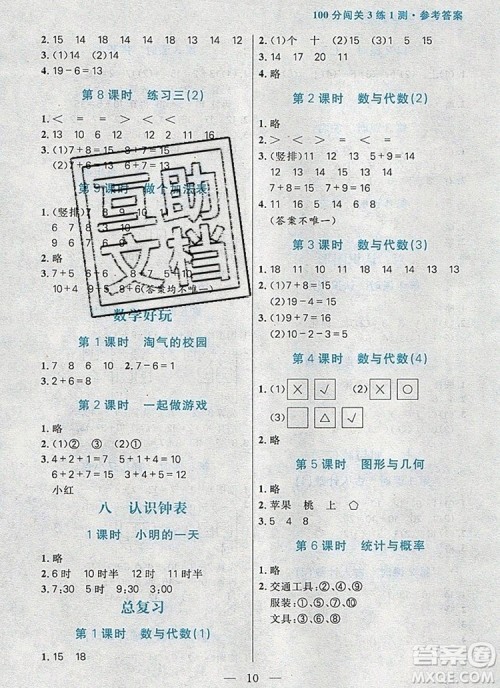 100分闯关3练1测·参考答案
2. 15 14 18 19 12 13 15 16
4. 19-6=13
第8课时 练习三(2)
1. < > = < > =
2. 13 10 16 12 19 18 17 12
3. (1)7+8=15 8+7=15
(2)19-6=13
第9课时 做个加法表
1. (竖排)7 8 9 10
2. 6 7 8 9
3. 7+5 6+6 5+7 8+4
10+4 9+5 8+6(答案均不唯一)
数学好玩
第1课时 淘气的校园
1. 7 8 6 10 4
2. 3+6=9
第2课时 一起做游戏
1. 略
2. (1)② ③ (2)①
3. 4+2+1=7 4+4+1=9
5+2+1=8 6+7+2=15
小红
八 认识钟表
1课时 小明的一天
1. 略
2. 6时 10时 12时 5时
3. 7;30 8;30 5;30 9
总复习
第1课时 数与代数(1)
1. 15 18
2. (1)个 十 (2)5 8
3. 略
4. 14-4=10
第2课时 数与代数(2)
1. 略
2. > < > <
3. (竖排)11 12 13 5+9=14
12 13 14 15 16 17
9+8=17(答案不唯一)
第3课时 数与代数(3)
1. 18 11 10 13 14 14 12 13
2. (1)7+6=13
(2)10-4=6
第4课时 数与代数(4)
1. (1)× √ (2)√
(3) △ √
2. 略
第5课时 图形与几何
1. 略
2. 苹果 桃 上
3. 5 4 8
第6课时 统计与概率
1. 略
2. 交通工具:②、④、⑨
服装:①、⑤、⑥、⑩
文具:③、⑦、⑧、⑪
10
互助文档
答案圈
MXQE.COM